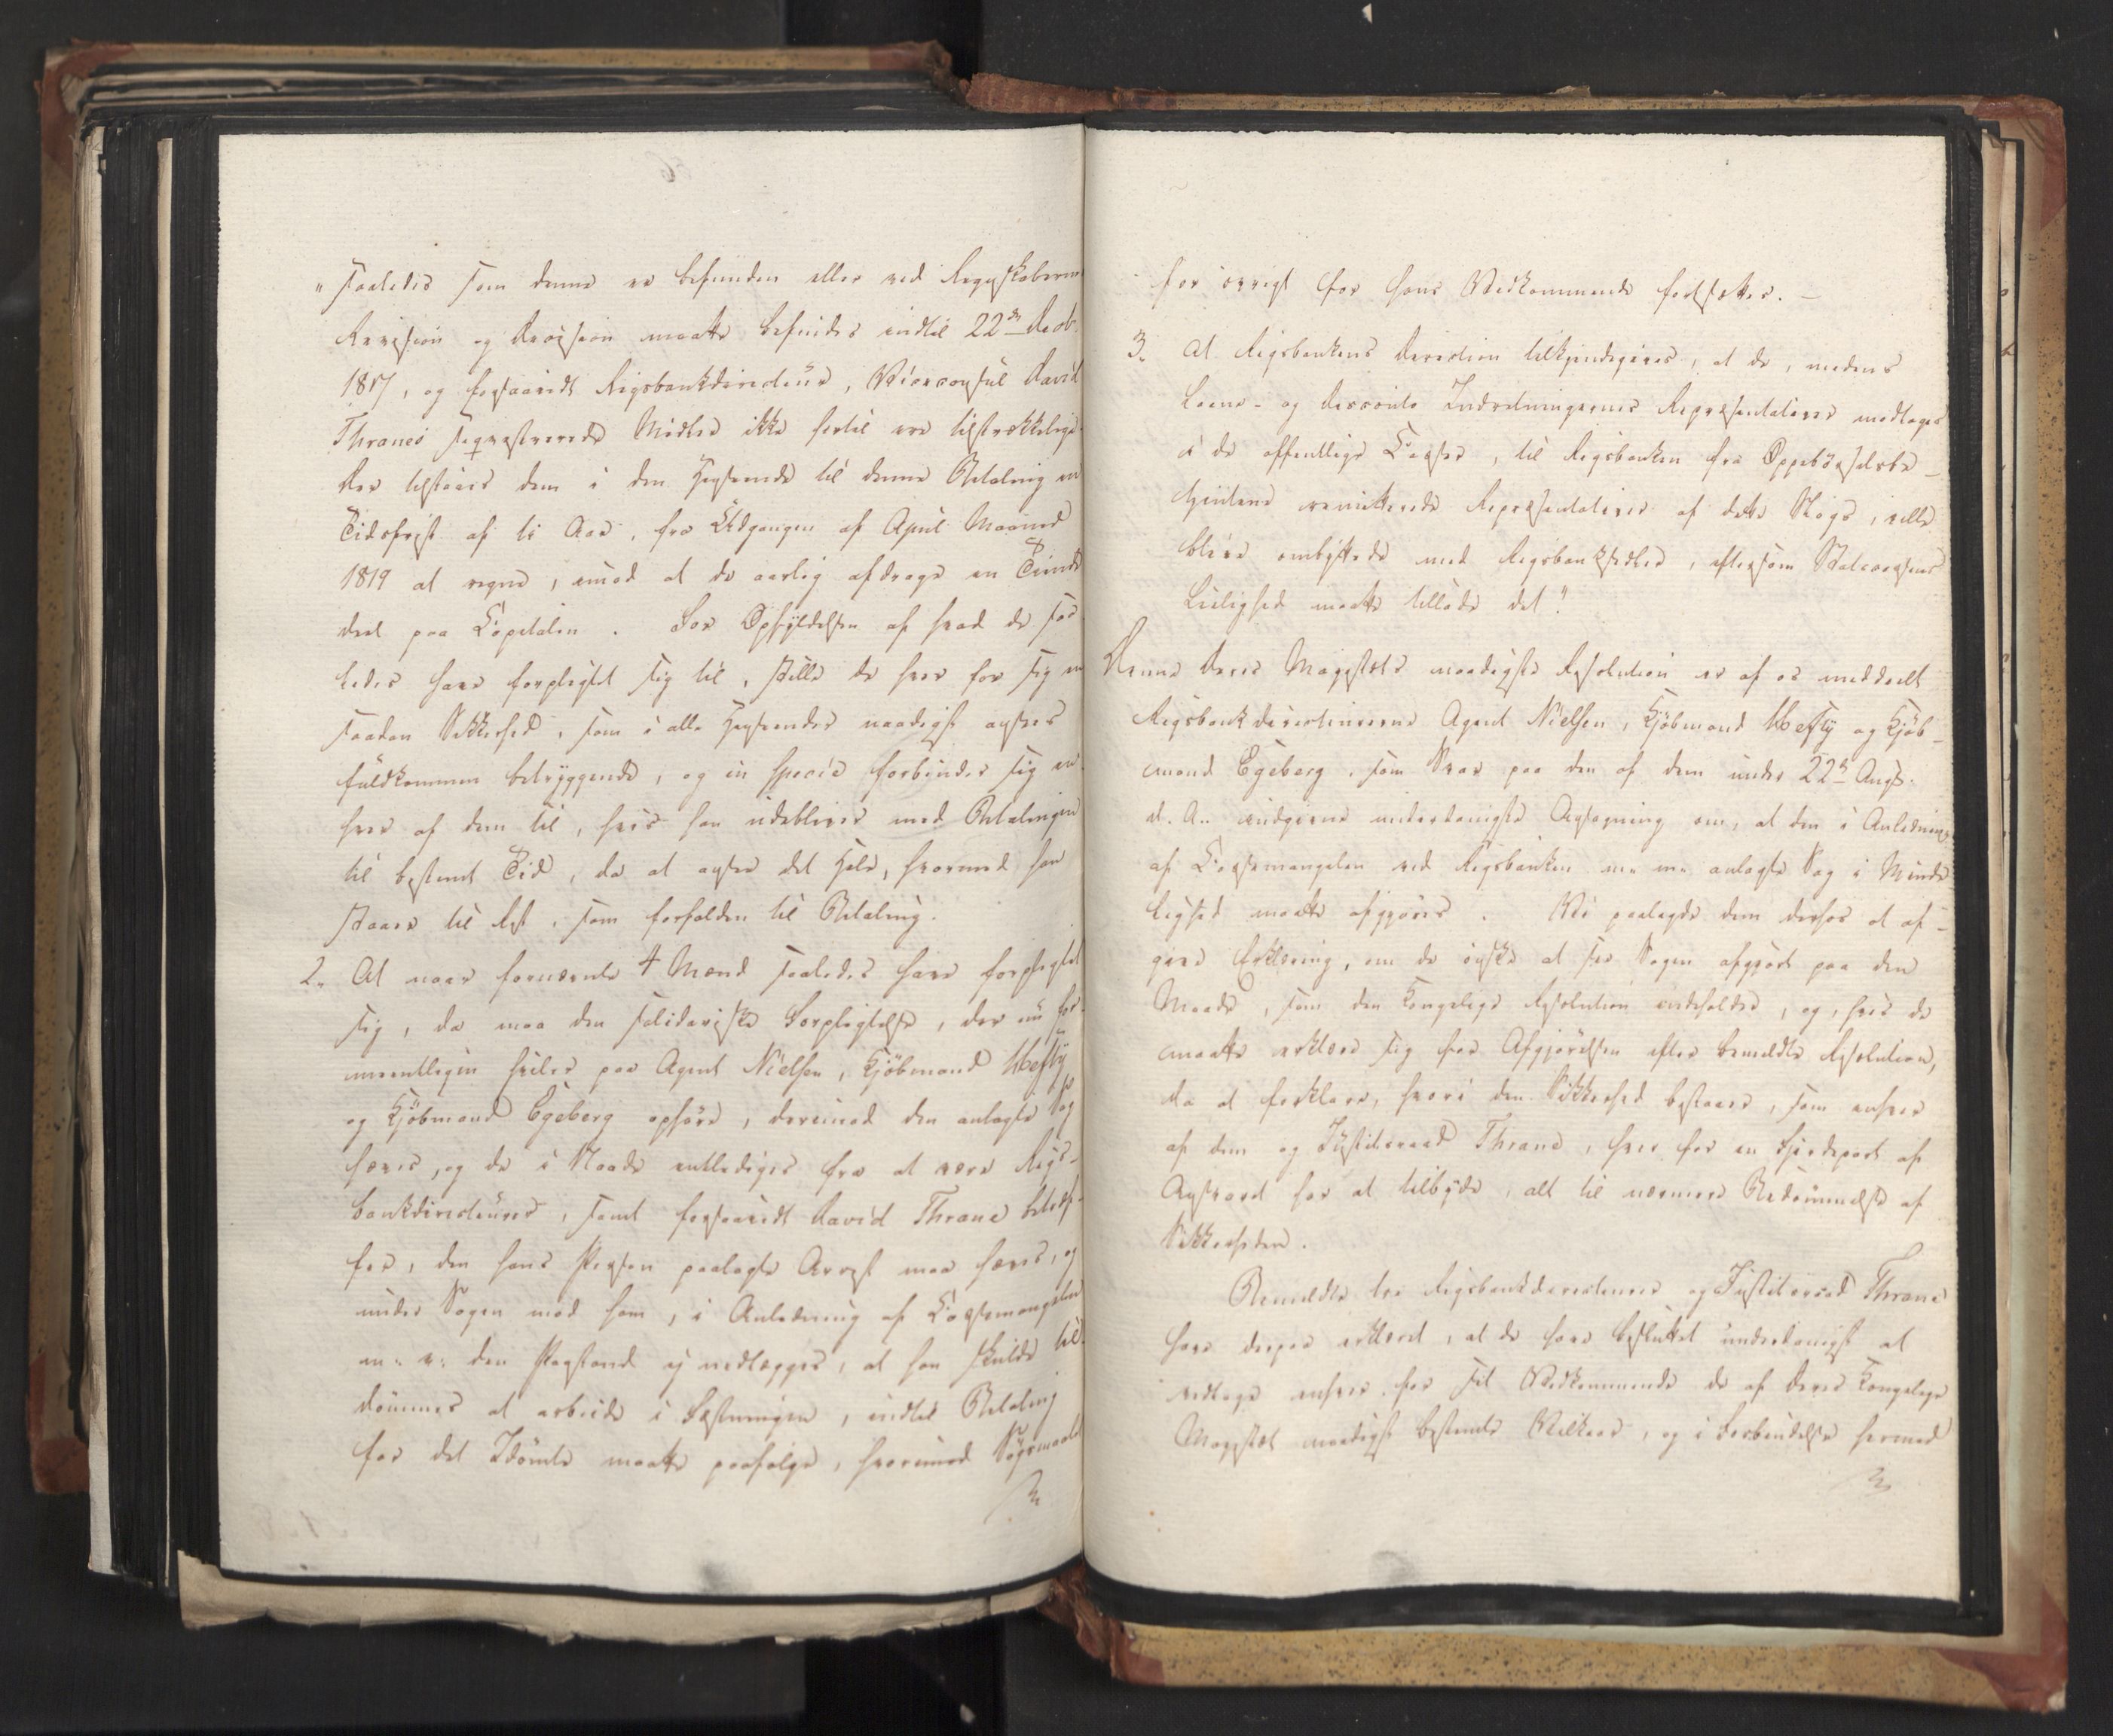 "saaledes som denne er befunden eller ved Regnskabernes
Revision og Decision maatte befindes indtil 22de Decbr.
1817, og forhenværende Rigsbankdirecteur, Viceconsul David
Thranes seqvestrerede Midler ikke hertil ere tilstrækkelige.
Der tilstaaes dem i den Henseende til denne Betaling en
Tidsfrist af ti Aar, fra Udgangen af April Maaned
1819 at regne, imod at de aarlig afdrage en Tiende
deel paa Capitalen. For Opfyldelsen af hvad de saa-
ledes have forpligtet sig til, stille de hver for sig en
saadan Sikkerhed, som i alle Henseender naadigst agtes
fuldkommen betryggende, og in specie forbinder sig en-
hver af dem til, hvis han udebliver med Betalingen
til bestemt Tid, da at ansee det Hele, hvormed han
staaer til Rest, som forfalden til Betaling.
2. At naar fornævnte 4 Mænd saaledes have forpligtet
sig, da maa den solidariske Forpligtelse, der nu for-
meentligen hviler paa Agent Nielsen, Kjöbmand Hefty
og Kjöbmand Egeberg ophöre, derimod den anlagte Sag
hæves, og de i Naade entlediges fra at være Rigs-
bankdirecteurer, samt forsaavidt David Thrane betræf-
fer, den hans Person paalagte Arrest maa hæves, og
under Sagen mod ham, i Anledning af Cassemangelen
m. v. den Paastand ej nedlægges, at han skulde til-
dömmes at arbeide i Fæstningen, indtil Betaling
for det Idömte maatte paafölge, hvorimod Sögsmaalet
for övrigt for hans Vedkommende fortsættes. –
3. At Rigsbankens Direction tilkjendegives, at de, medens
Laane- og Disconto Indretningernes Repræsentativer modtages
i de offentlige Casser, til Rigsbanken fra Oppebörselsbe-
tjentene remitterede Repræsentativer af dette Slags, ville
blive ombyttede med Rigsbanksedler, eftersom Statscassens
Leilighed maatte tillade det."
Denne Deres Majestæts naadigste Resolution er af os meddeelt
Rigsbankdirecteurerne Agent Nielsen, Kjöbmand Hefty og Kjöb-
mand Egeberg, som Svar paa den af dem under 22de Augs.
d. A. indgivne underdanigste Ansögning om, at den i Anledning
af Cassemangelen ved Rigsbanken m. m. anlagte Sag i Minde-
lighed maatte afgjöres. Vi paalagde dem derhos at af-
give Erklæring, om de önske at see Sagen afgjort paa den
Maade, som den Kongelige Resolution indeholder, og, hvis de
maatte erklære sig for Afgjörelsen efter bemeldte Resolution,
da at forklare, hvori den Sikkerhed bestaaer, som enhver
af dem og Justitsraad Thrane, hver for en Fjerdepart af
Ansvaret har at tilbyde, alt til nærmere Bedömmelse af
Sikkerheden.
Bemeldte tre Rigsbankdirecteurer og Justitsraad Thrane
have derpaa erklæret, at de have besluttet underdanigst at
vedtage enhver for sit Vedkommende de af Deres Kongelige
Majestæt naadigst bestemte Vilkaar, og i Forbindelse hermed